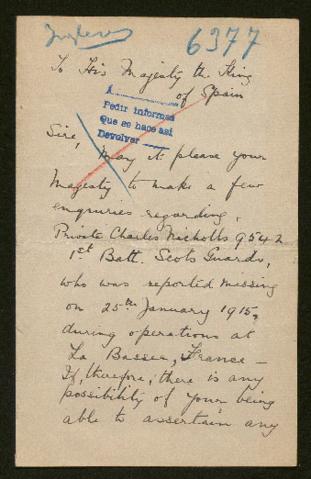 Ingleses
6377
To His Majesty the King
of Spain
A
Pedir informes
Que se hace así
Devolver
Sire,
May it please your
Majesty to make a few
enquiries regarding,
Private Charles Nicholls 9542
1st Batt. Scots Guards,
who was reported missing
on 25th January 1915,
during operations at
La Bassee, France –
If, therefore, there is any
possibility of your being
able to assertain any